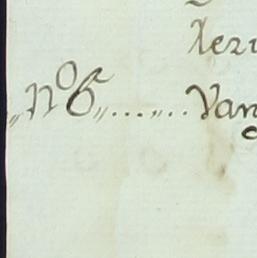 Xezu
„nº 6„..."... Van